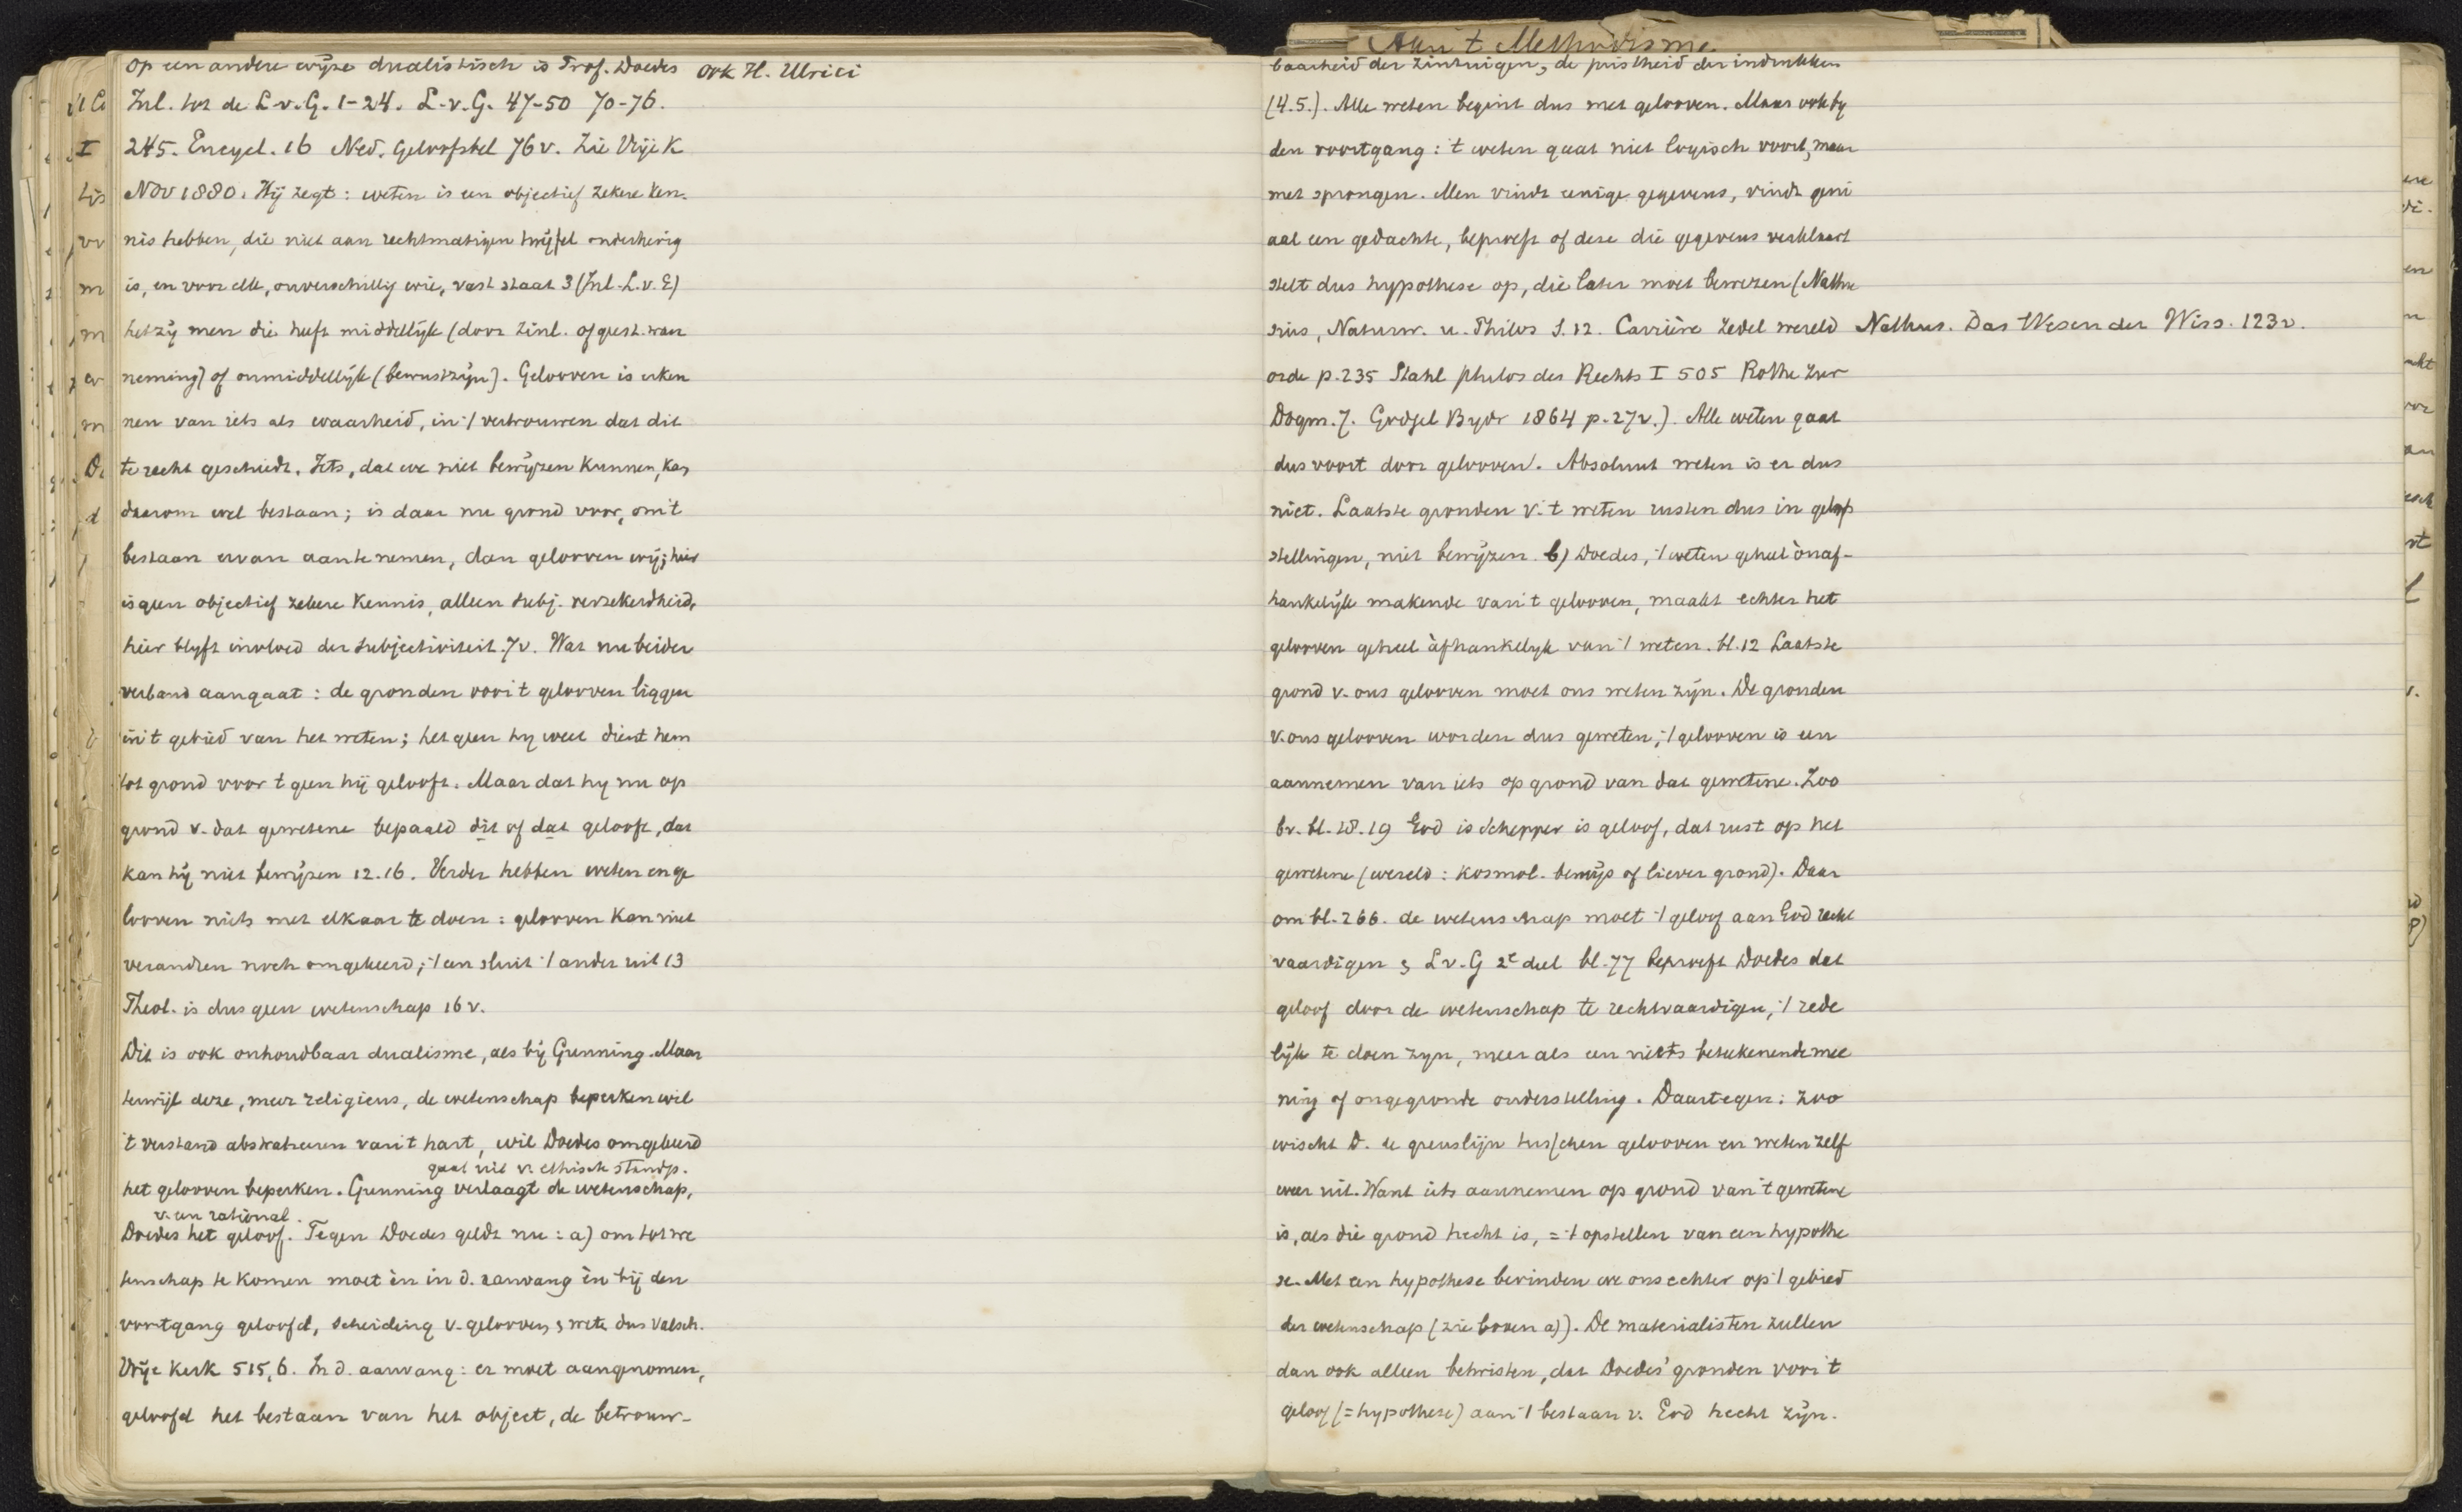 op een andere wijze dualistisch is Prof. Doedes ook H. Ulrici
Inl. tot de L.v.G. 1-24. L.v.G. 47-50 70-76.
245. Encycl. 16 Ned. Geloofsbel 76v. Zie Vrije K
Nov 1880. Hij zegt: weten is een objectief zekere ken-
nis hebben, die niet aan rechtmatigen twijfel onderhevig
is, en voor elk, onverschillig wie, vast staat 3 (Inl. L.v.G)
hetzij men die heeft middellijk (door zinl. of geest. waar
neming) of onmiddellijk (bewustzijn). Gelooven is erken
nen van iets als waarheid, in 't vertrouwen dat dit
te recht geschiedt. Iets, dat we niet bewijzen kunnen, kan
daarom wel bestaan; is daar nu grond voor, om 't
bestaan ervan aan te nemen, dan gelooven wij; hier
is geen objectief zekere kennis, alleen subj. verzekerdheid,
hier blyft invloed der subjectiviteit. 7v. Wat nu beider
verband aangaat: de gronden voor 't gelooven liggen
in 't gebied van het weten; hetgeen hy weet dient hem
tot grond voor t geen hij gelooft. Maar dat hy nu op
grond v. dat gewetene bepaald dit of dat gelooft, dat
kan hij niet bewijzen 12.16. Verder hebben weten en ge
looven niets met elkaar te doen: gelooven kan niet
verandren noch omgekeerd; 't een sluit 't ander uit 13
Theol. is dus geen wetenschap 16v.
Dit is ook onhoudbaar dualisme, als bij Gunning. Maar
terwijl deze, meer religieus, de wetenschap beperken wil
't verstand abstraheeren van 't hart, wil Doedes omgekeerd
gaat uit v. ethisch standp.
het gelooven beperken. Gunning verlaagt de wetenschap,
v. een rational.
Doedes het geloof. Tegen Doedes geldt nu: a) om tot we
tenschap te komen moet èn in d. aanvang èn bij den
voortgang geloofd, scheiding v. gelooven & wete dus valsch.
Vrije Kerk 515,6. In d. aanvang: er moet aangenomen,
geloofd het bestaan van het object, de betrouw-
Aan t Methodisme
baarheid der zintuigen, de juistheid der indrukken
(4.5.). Alle weten begint dus met gelooven. Maar ook by
den voortgang: t weten gaat niet logisch voort, maar
met sprongen. Men vindt eenige gegevens, vindt geni
aal een gedachte, beproeft of deze die gegevens verklaart
stelt dus hypothese op, die later moet bewezen (Nathu
sius, Naturw. u. Philos S. 12. Carrière Zedel wereld Nathus. Das Wesen der Wiss. 123v.
orde p. 235 Stahl philos des Rechts I 505 Rothe Zur
Dogm. 7. Bydr 1864 p. 27v.). Alle weten gaat
dus voort door gelooven. Absoluut weten is er dus
niet. Laatste gronden v. t weten rusten dus in geloofs
stellingen, niet bewijzen. b) Doedes, 't weten geheel ònaf-
hankelijk makende van 't gelooven, maakt echter het
gelooven geheel àfhankelyk van 't weten. bl. 12 Laatste
grond v. ons gelooven moet ons weten zijn. De gronden
v. ons gelooven worden dus geweten; 't gelooven is een
aannemen van iets op grond van dat gewetene. Zoo
bv. bl. 18.19 God is Schepper is geloof, dat rust op het
gewetene (wereld: kosmol. bewijs of liever grond). Daar
om bl. 266. de wetenschap moet 't geloof aan God recht
vaardigen & L.v.G 2e deel bl. 77 beproeft Doedes dat
geloof door de wetenschap te rechtvaardigen, 't rede
lijk te doen zyn, meer als een niets beteekenende mee
ning of ongegronde onderstelling. Daartegen: zoo
wischt D. de grenslijn tusschen gelooven en weten zelf
weer uit. Want iets aannemen op grond van 't gewetene
is, als die grond hecht is, = 't opstellen van een hypothe
se. Met een hypothese bevinden we ons echter op 't gebied
der wetenschap (zie boven a)). De materialisten zullen
dan ook alleen betwisten, dat Doedes' gronden voor 't
geloof (= hypothese) aan 't bestaan v. God hecht zijn.